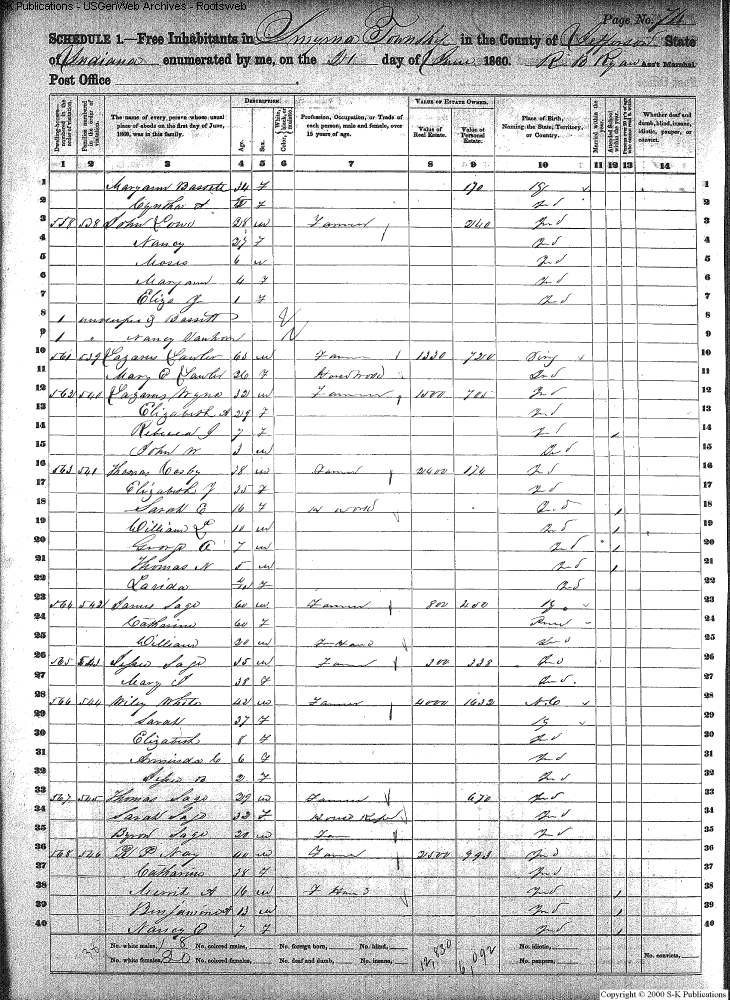 SK Publications - USGenWeb Archives - Rootsweb
Page No. 74
SCHEDULE 1.—Free Inhabitants in Smyrna Township in the County of Jefferson State
of Indiana enumerated by me, on the 21 day of June 1860. R B Ryan Ass't Marshal
Post Office
Dwelling-houses numbered in the order of visitation.
Families numbered in the order of visitation.
The name of every person whose usual place of abode on the first day of June, 1860, was in this family.
DESCRIPTION.
Age. Sex. Color, White, black, or mulatto.
Profession, Occupation, or Trade of each person, male and female, over 15 years of age.
VALUE OF ESTATE OWNED.
Value of Real Estate. Value of Personal Estate.
Place of Birth, Naming the State, Territory, or Country.
Married within the year. Attended School within the year.
Whether deaf and dumb, blind, insane, idiotic, pauper, or convict.
1 2 3 4 5 6 7 8 9 10 11 12 13 14
1 Maryann Bassett 34 F 170 Ky 1
2 Cyntha A F Ind 2
3 558 538 John Lowe 28 m Farmer 240 Ind 3
4 Nancy 27 F Ind 4
5 Moses 6 m Ind 5
6 Maryann 4 F Ind 6
7 Eliza J 1 F Ind 7
8 1 Bassett 8
9 1 " Nancy Vanhorn 9
10 561 539 Lazarus Lawler 63 m Farmer 1330 720 Virg 10
11 Mary E Lawler 26 F House Work Ind 11
12 562 540 Lazarus Wyne 32 m Farmer 1500 705 Ind 12
13 Elizabeth A 29 F Ind 13
14 Rebecca J 7 F Ind 14
15 John W 3 m Ind 15
16 563 541 Thomas Cosby 38 m Farmer 2400 174 Ind 16
17 Elizabeth J 35 F Ind 17
18 Sarah E 16 F H Work Ind 18
19 William L 10 m Ind 19
20 George A 7 m Ind 20
21 Thomas N 5 m Ind 21
22 Larida F Ind 22
23 564 542 James Sage 60 m Farmer 800 450 Ky 23
24 Catharine 60 F Penn 24
25 William 20 m F Hand Ind 25
26 565 543 Jesse Sage 35 m Farmer 300 338 Ind 26
27 Mary J 38 F Ind. 27
28 566 544 Wiley White 42 m Farmer 4000 1632 N.C 28
29 Sarah 37 F Ky 29
30 Elizabeth 8 F Ind 30
31 Arminda C 6 F Ind 31
32 Jesse B 2 F Ind 32
33 567 545 Thomas Sage 29 m Farmer 670 Ind 33
34 Sarah Sage 32 F House Keeper Ind 34
35 Byron Sage 20 m Far Ind 35
36 568 546 R P Nay 40 m Farmer 2500 993 Ind 36
37 Catharine 38 F Ind 37
38 Merrit A 16 m F Hand Ind 38
39 Binjamine A 13 m Ind 39
40 Nancy E 7 F Ind 40
No. white males, 18 No. colored males, No. foreign born, No. blind, 12,830 6,092 No. idiotic, No. convicts,
No. white females, 20 No. colored females, No. deaf and dumb, No. insane, No. paupers,
Copyright © 2000 S-K Publications